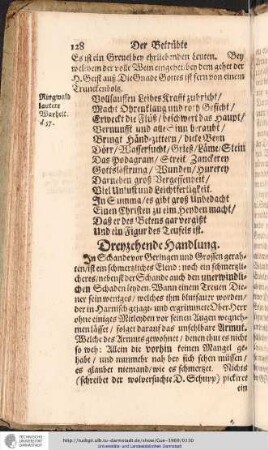 128 Der Betrübte
Es ist ein Greuel bey ehrliebenden Leuten. Bey
welchem der volle Wein eingehet/bey dem gehet der
H. Geist auß Die Gnade Gottes ist fern von einem
Trunckenbolz.
Ringwald
lautere
Warheit.
d 57.
Vollsauffen Leibes Krafft zubricht/
Macht Ohrenklang und roth Gesicht/
Erweckt die Flüß/ beschwert das Haupt/
Vernunfft und alle Sinn beraubt/
Bringt Händ-zittern/ dicke Bein
Dörr/ Wassersucht/ Grieß/ Läme/ Stein
Das Podagram/ Streit Zanckerey
Gottslästrung/ Wunden/ Hurerey
Darneben groß Vergessenheit/
Viel Unlust und Leichtfertigkeit.
In Summa/ es gibt groß Unbedacht
Einen Christen zu eim Heyden macht/
Daß er des Betens gar vergißt
Und ein Figur des Teufels ist.
Dreyzehende Handlung.
In Schande vor Geringen und Grossen gerah-
ten/ist ein schmertzliches Elend: noch ein schmertz-
licheres/nebenst der Schande auch den unerwindli-
chen Schaden leyden. Wann einem Treuen Die-
ner sein wentges/ welches ihm blutsaurer worden/
der in Harnisch gejagt und ergrimmete Ober-Herr
ohne einiges Mitleyden vor seinen Augen wegneh-
men lässet/ folget darauf das unfehlbare Armut.
Welche des Armuts gewohnet/ denen thut es nicht
so weh: Allein die vorhin keinen Mangel ge-
habt/ und nunmehr nah bey sich sehen müssen/
es glaubet niemand/wie es schmertzet. Nichts
(schreibet der wolversuchte D. Schupp) pickiret
ein
http://tudigit.ulb.tu-darmstadt.de/show/Gun-1989/0130
Universitäts- und Landesbibliothek Darmstadt